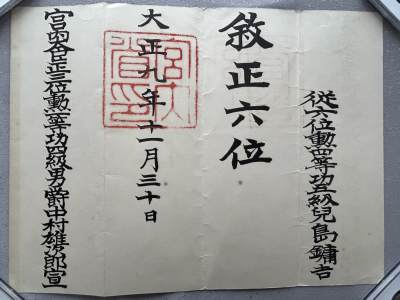 從六位勲四等功五級兒島鏞吉
敘正六位
大正九年十一月三十日
宮内大臣正三位勲一等功四級男爵中村雄次郎宣
宮内省印